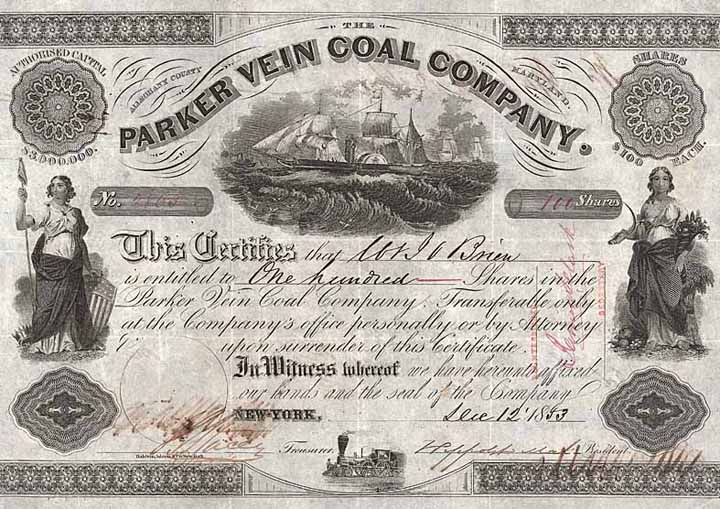 THE
PARKER VEIN COAL COMPANY.
ALLEGHANY COUNTY
MARYLAND.
AUTHORISED CAPITAL
$3,000,000.
SHARES
$100 EACH.
No.
100 Shares
This Certifies that W & J O'Brien
is entitled to One hundred Shares in the
Parker Vein Coal Company. Transferable only
at the Company's office personally or by Attorney
upon surrender of this Certificate.
In Witness whereof we have hereunto affixed
our hands and the seal of the Company
NEW-YORK, Dec 12' 1853
Treasurer. President